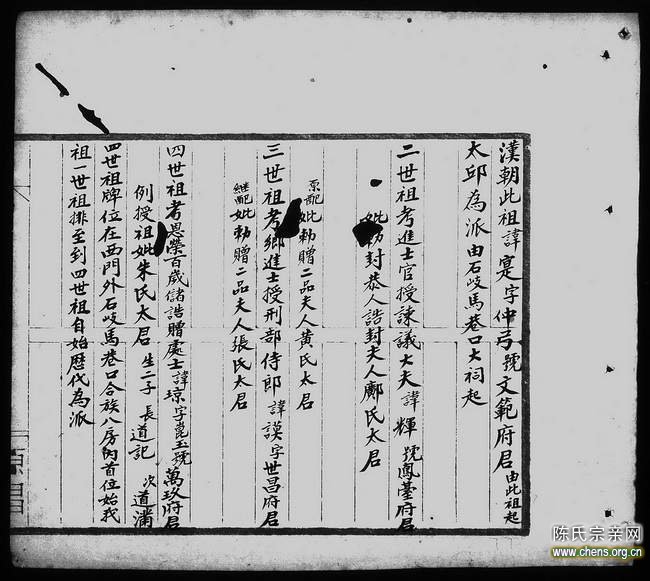 漢朝此祖諱寔字仲弓號文範府君由此祖起
太邱為派由石岐馬巷口大祠起
二世祖考進士官授諫議大夫諱輝號鳳臺府君
妣勅封恭人誥封夫人鄺氏太君
原配妣勅贈二品夫人黃氏太君
三世祖考鄉進士授刑部侍郎諱謨字世昌府君
継配妣勅贈二品夫人張氏太君
四世祖考恩榮百歲儲誥贈處士諱琼字崑玉號萬玖府君
例授祖妣朱氏太君生二子長道記次道滿
四世祖牌位在西門外石岐馬巷口合族八房內首位始我
祖一世祖排至到四世祖自始歷代為派
陈氏宗亲网
www.chens.org.cn